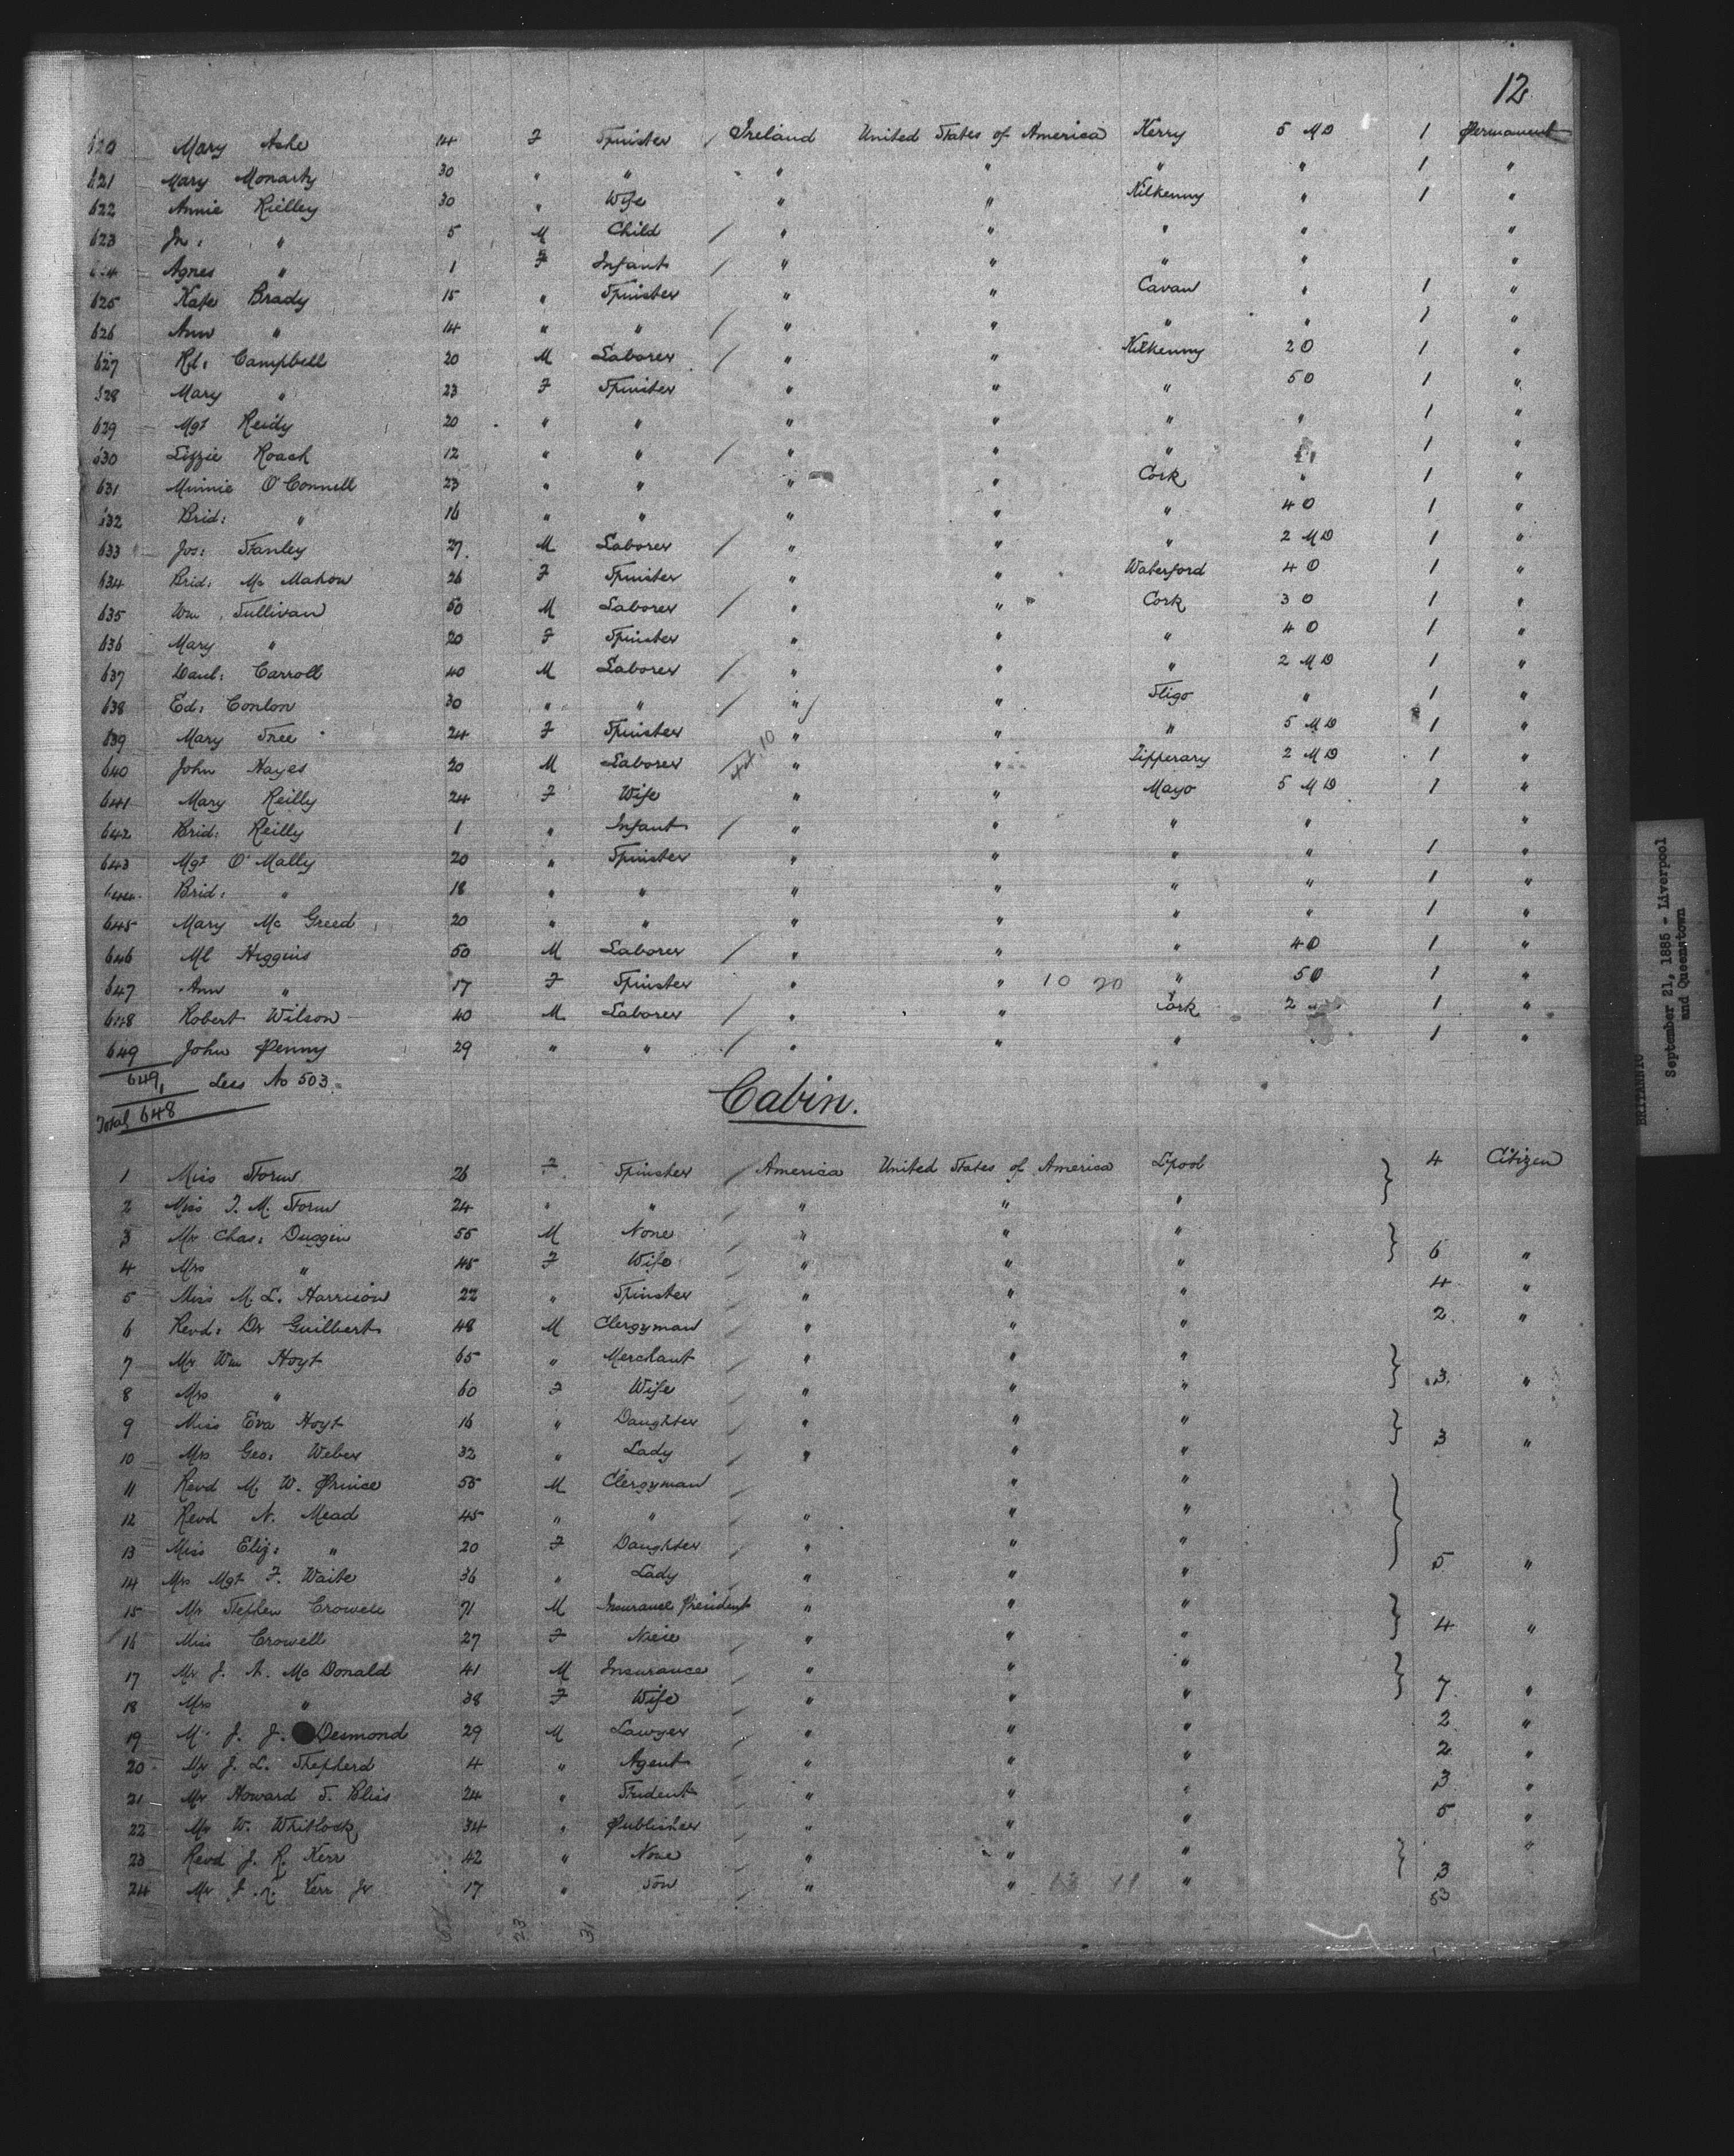 12
620 Mary Ashe 14 F Spinster / Ireland United States of America Kerry 5 MD 1 Permanent
621 Mary Monarty 30 " " " " " " 1 "
622 Annie Rielley 30 " Wife " " Kilkenny " 1 "
623 Jn: " 5 M Child / " " " " "
624 Agnes " 1 F Infant / " " " " "
625 Kate Brady 15 " Spinster " " Cavan " 1 "
626 Ann " 14 " " / " " " " 1 "
627 Rd: Campbell 20 M Laborer / " " Kilkenny 20 1 "
628 Mary " 23 F Spinster " " " 50 1 "
629 Mgt Reidy 20 " " " " " " 1 "
630 Lizzie Roach 12 " " / " " " 1 "
631 Minnie O'Connell 23 " " " " Cork " 1 "
632 Brid: " 16 " " " " " 40 1 "
633 Jos: Stanley 27 M Laborer / " " " 2 MD 1 "
634 Brid: Mc Mahon 26 F Spinster " " Waterford 40 1 "
635 Wm Sullivan 50 M Laborer / " " Cork 30 1 "
636 Mary " 20 F Spinster " " " 40 1 "
637 Danl: Carroll 40 M Laborer / " " " 2 MD 1 "
638 Ed: Conlon 30 " " / " " Sligo " 1 "
639 Mary Free 24 F Spinster " " " 5 MD 1 "
640 John Hayes 20 M Laborer " " Tipperary 2 MD 1 "
641 Mary Reilly 24 F Wife " " Mayo 5 MD 1 "
642 Brid: Reilly 1 " Infant / " " " " "
643 Mgt O'Mally 20 " Spinster " " " " 1 "
644 Brid: " 18 " " " " " " 1 "
645 Mary Mc Greed 20 " " " " " " 1 "
646 Ml Higgins 50 M Laborer / " " " 40 1 "
647 Ann " 17 F Spinster " " 10 20 " 50 1 "
648 Robert Wilson 40 M Laborer / " " Cork 2 1 "
649 John Penny 29 " " / " " " 1 "
649, Less No 503.
Total 648
Cabin.
1 Miss Storm 26 F Spinster / America United States of America L'pool 4 Citizen
2 Miss F. M. Storm 24 " " / " " "
3 Mr Chas: Duggin 55 M None / " " "
4 Mrs " 45 F Wife / " " " 6 "
5 Miss M. L. Harrison 22 " Spinster / " " " 4 "
6 Revd: Dr Guilbert 48 M Clergyman / " " " 2 "
7 Mr Wm Hoyt 65 " Merchant / " " "
8 Mrs " 60 F Wife / " " " 3 "
9 Miss Eva Hoyt 16 " Daughter / " " "
10 Mrs Geo: Weber 32 " Lady / " " " 3 "
11 Revd M. W. Prince 55 M Clergyman / " "
12 Revd N. Mead 45 " " / " " "
13 Miss Eliz: " 20 F Daughter / " " "
14 Mrs Mgt F. Waite 36 " Lady / " " " 5 "
15 Mr Stephen Crowell 71 M Insurance President " " "
16 Miss Crowell 27 F Niece / " " " 4 "
17 Mr J. A. Mc Donald 41 M Insurance / " " "
18 Mrs " 38 F Wife / " " " 7 "
19 Mr J. J. Desmond 29 M Lawyer / " " " 2 "
20 Mr J. L. Shepherd 4 " Agent / " " " 2 "
21 Mr Howard S. Bliss 24 " Student / " " " 3 "
22 Mr W. Whitlock 34 " Publisher / " " " 5 "
23 Revd J. R. Kerr 42 " None / " " " "
24 Mr J. R. Kerr Jr 17 " Son / " " " 3
53
23 31
BRITANNIC
September 21, 1885 - Liverpool
and Queenstown